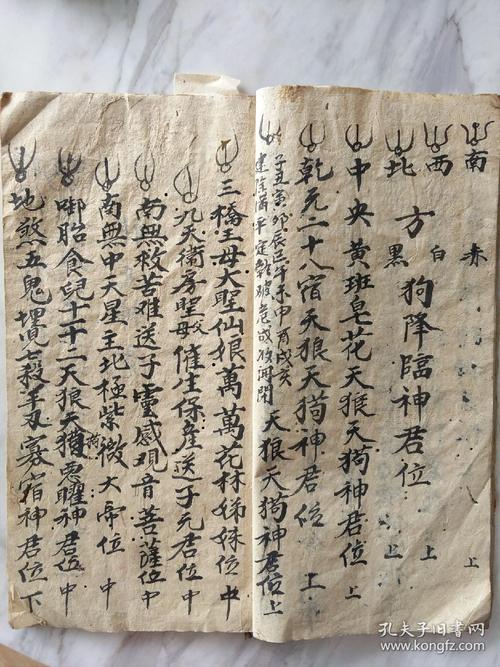 南 赤 上
西 白 上
北 黑 方 狗降臨神君位 上
中央黃班皂花天狼天狗神君位 上
乾元二十八宿天狼天狗神君位 上
子丑寅卯辰巳午未申酉戌亥
建除滿平定執破危成收開閉 天狼天狗神君位 上
三橋王母大聖仙娘萬萬花林姊妹位 中
九天衛房聖母催生保產送子元君位 中
南無救苦難送子靈感觀音菩薩位 中
南無中天星王北極紫微大帝位 中
啣胎食兒十十二天狼天狗惡曜神君位 中
地煞五鬼 七殺羊刃寡宿神君位 下
孔夫子旧书网
www.kongfz.com